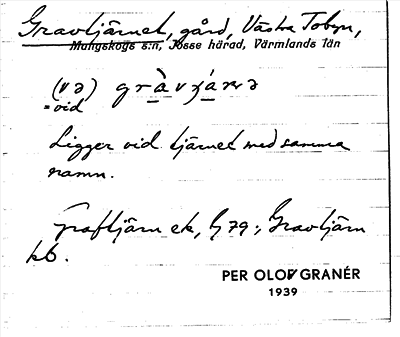 Gravtjärnet, gård, Västra Tobyn,
Mangskogs s:n, Jösse härad, Värmlands län
(və) gràvʒánə
=vid
Ligger vid tjärnet med samma
namn.
Graftjärn ek, G 79; Gravtjärn
kb.
PER OLOV GRANÉR
1939